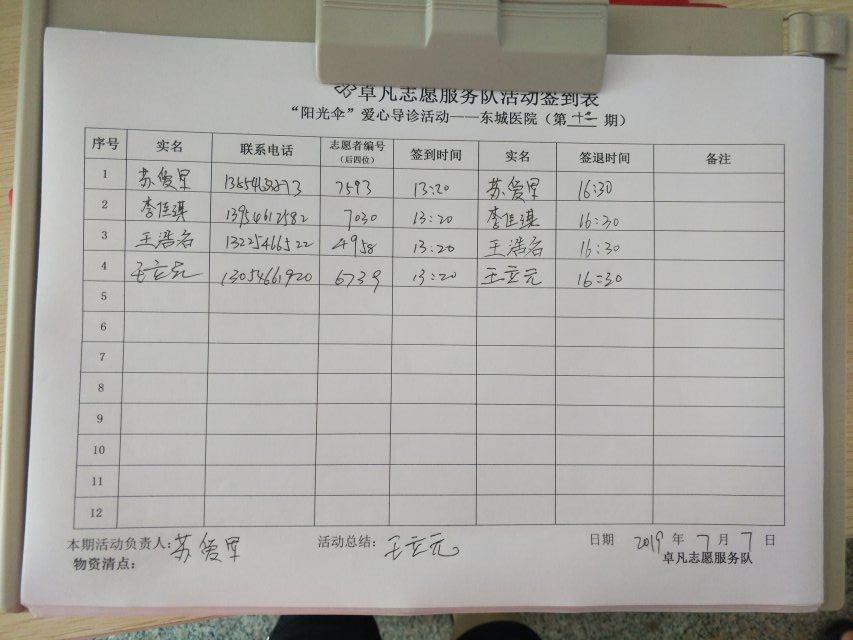 卓凡志愿服务队活动签到表
“阳光伞”爱心导诊活动——东城医院（第十二期）
序号 实名 联系电话 志愿者编号（后四位） 签到时间 实名 签退时间 备注
1 苏俊军 7593 13:20 苏俊军 16:30
2 李佳琪 13954612582 7030 13:20 李佳琪 16:30
3 王浩名 13225466522 4958 13:20 王浩名 16:30
4 王立元 13054661920 6739 13:20 王立元 16:30
5
6
7
8
9
10
11
12
本期活动负责人：苏俊军 活动总结：王立元 日期 2019 年 7 月 7 日
物资清点： 卓凡志愿服务队